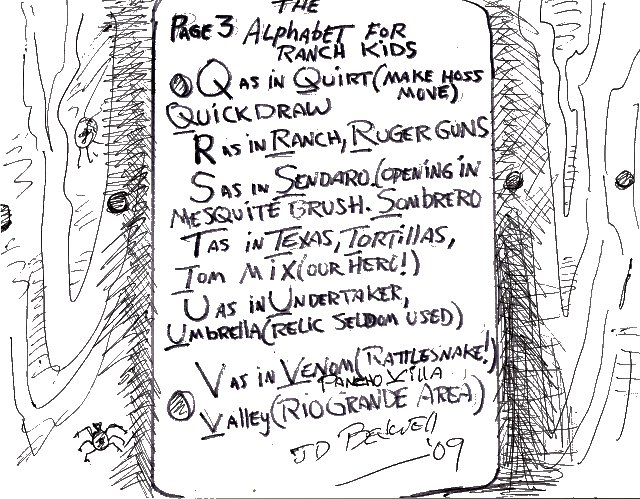 THE
PAGE 3 ALPHABET FOR
RANCH KIDS
Q AS IN QUIRT (MAKE HOSS
MOVE)
QUICKDRAW
R AS IN RANCH, RUGER GUNS
S AS IN SENDARO (OPENING IN
MESQUITE BRUSH. SOMBRERO
T AS IN TEXAS, TORTILLAS,
TOM MIX (OUR HERO!)
U AS IN UNDERTAKER,
UMBRELLA (RELIC SELDOM USED)
V AS IN VENOM (RATTLESNAKE!)
PANCHO VILLA
VALLEY (RIO GRANDE AREA)
JD
'09